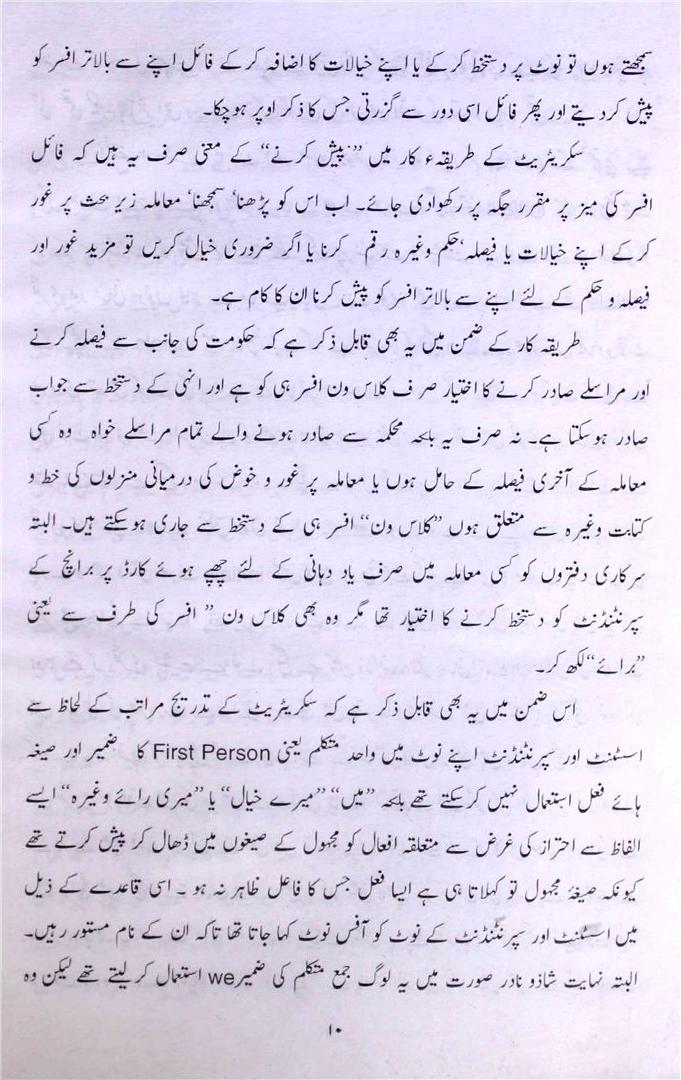 سمجھتے ہوں تو نوٹ پر دستخط کر کے یا اپنے خیالات کا اضافہ کر کے فائل اپنے سے بالاتر افسر کو
پیش کر دیتے اور پھر فائل اسی دور سے گزرتی جس کا ذکر اوپر ہو چکا۔
سکریٹریٹ کے طریقہء کار میں ”پیش کرنے“ کے معنی صرف یہ ہیں کہ فائل
افسر کی میز پر مقرر جگہ پر رکھوا دی جائے۔ اب اس کو پڑھنا‘ سمجھنا‘ معاملہ زیر بحث پر غور
کر کے اپنے خیالات یا فیصلہ‘ حکم وغیرہ رقم کرنا یا اگر ضروری خیال کریں تو مزید غور اور
فیصلہ و حکم کے لئے اپنے سے بالاتر افسر کو پیش کرنا ان کا کام ہے۔
طریقہ کار کے ضمن میں یہ بھی قابل ذکر ہے کہ حکومت کی جانب سے فیصلہ کرنے
اور مراسلے صادر کرنے کا اختیار صرف کلاس ون افسر ہی کو ہے اور انہی کے دستخط سے جواب
صادر ہو سکتا ہے۔ نہ صرف یہ بلکہ محکمہ سے صادر ہونے والے تمام مراسلے خواہ وہ کسی
معاملہ کے آخری فیصلہ کے حامل ہوں یا معاملہ پر غور و خوض کی درمیانی منزلوں کی خط و
کتابت وغیرہ سے متعلق ہوں ”کلاس ون“ افسر ہی کے دستخط سے جاری ہو سکتے ہیں۔ البتہ
سرکاری دفتروں کو کسی معاملہ میں صرف یاد دہانی کے لئے چھپے ہوئے کارڈ پر برانچ کے
سپرنٹنڈنٹ کو دستخط کرنے کا اختیار تھا مگر وہ بھی کلاس ون ” افسر کی طرف سے یعنی
”برائے“ لکھ کر۔
اس ضمن میں یہ بھی قابل ذکر ہے کہ سکریٹریٹ کے تدریج مراتب کے لحاظ سے
اسسٹنٹ اور سپرنٹنڈنٹ اپنے نوٹ میں واحد متکلم یعنی First Person کا ضمیر اور صیغہ
ہائے فعل استعمال نہیں کر سکتے تھے بلکہ ”میں“ ”میرے خیال“ یا ”میری رائے وغیرہ“ ایسے
الفاظ سے احتراز کی غرض سے متعلقہ افعال کو مجہول کے صیغوں میں ڈھال کر پیش کرتے تھے
کیونکہ صیغۂ مجہول تو کہلاتا ہی ہے ایسا فعل جس کا فاعل ظاہر نہ ہو۔ اسی قاعدے کے ذیل
میں اسسٹنٹ اور سپرنٹنڈنٹ کے نوٹ کو آفس نوٹ کہا جاتا تھا تاکہ ان کے نام مستور رہیں۔
البتہ نہایت شاذو نادر صورت میں یہ لوگ جمع متکلم کی ضمیر we استعمال کر لیتے تھے لیکن وہ
۱۰